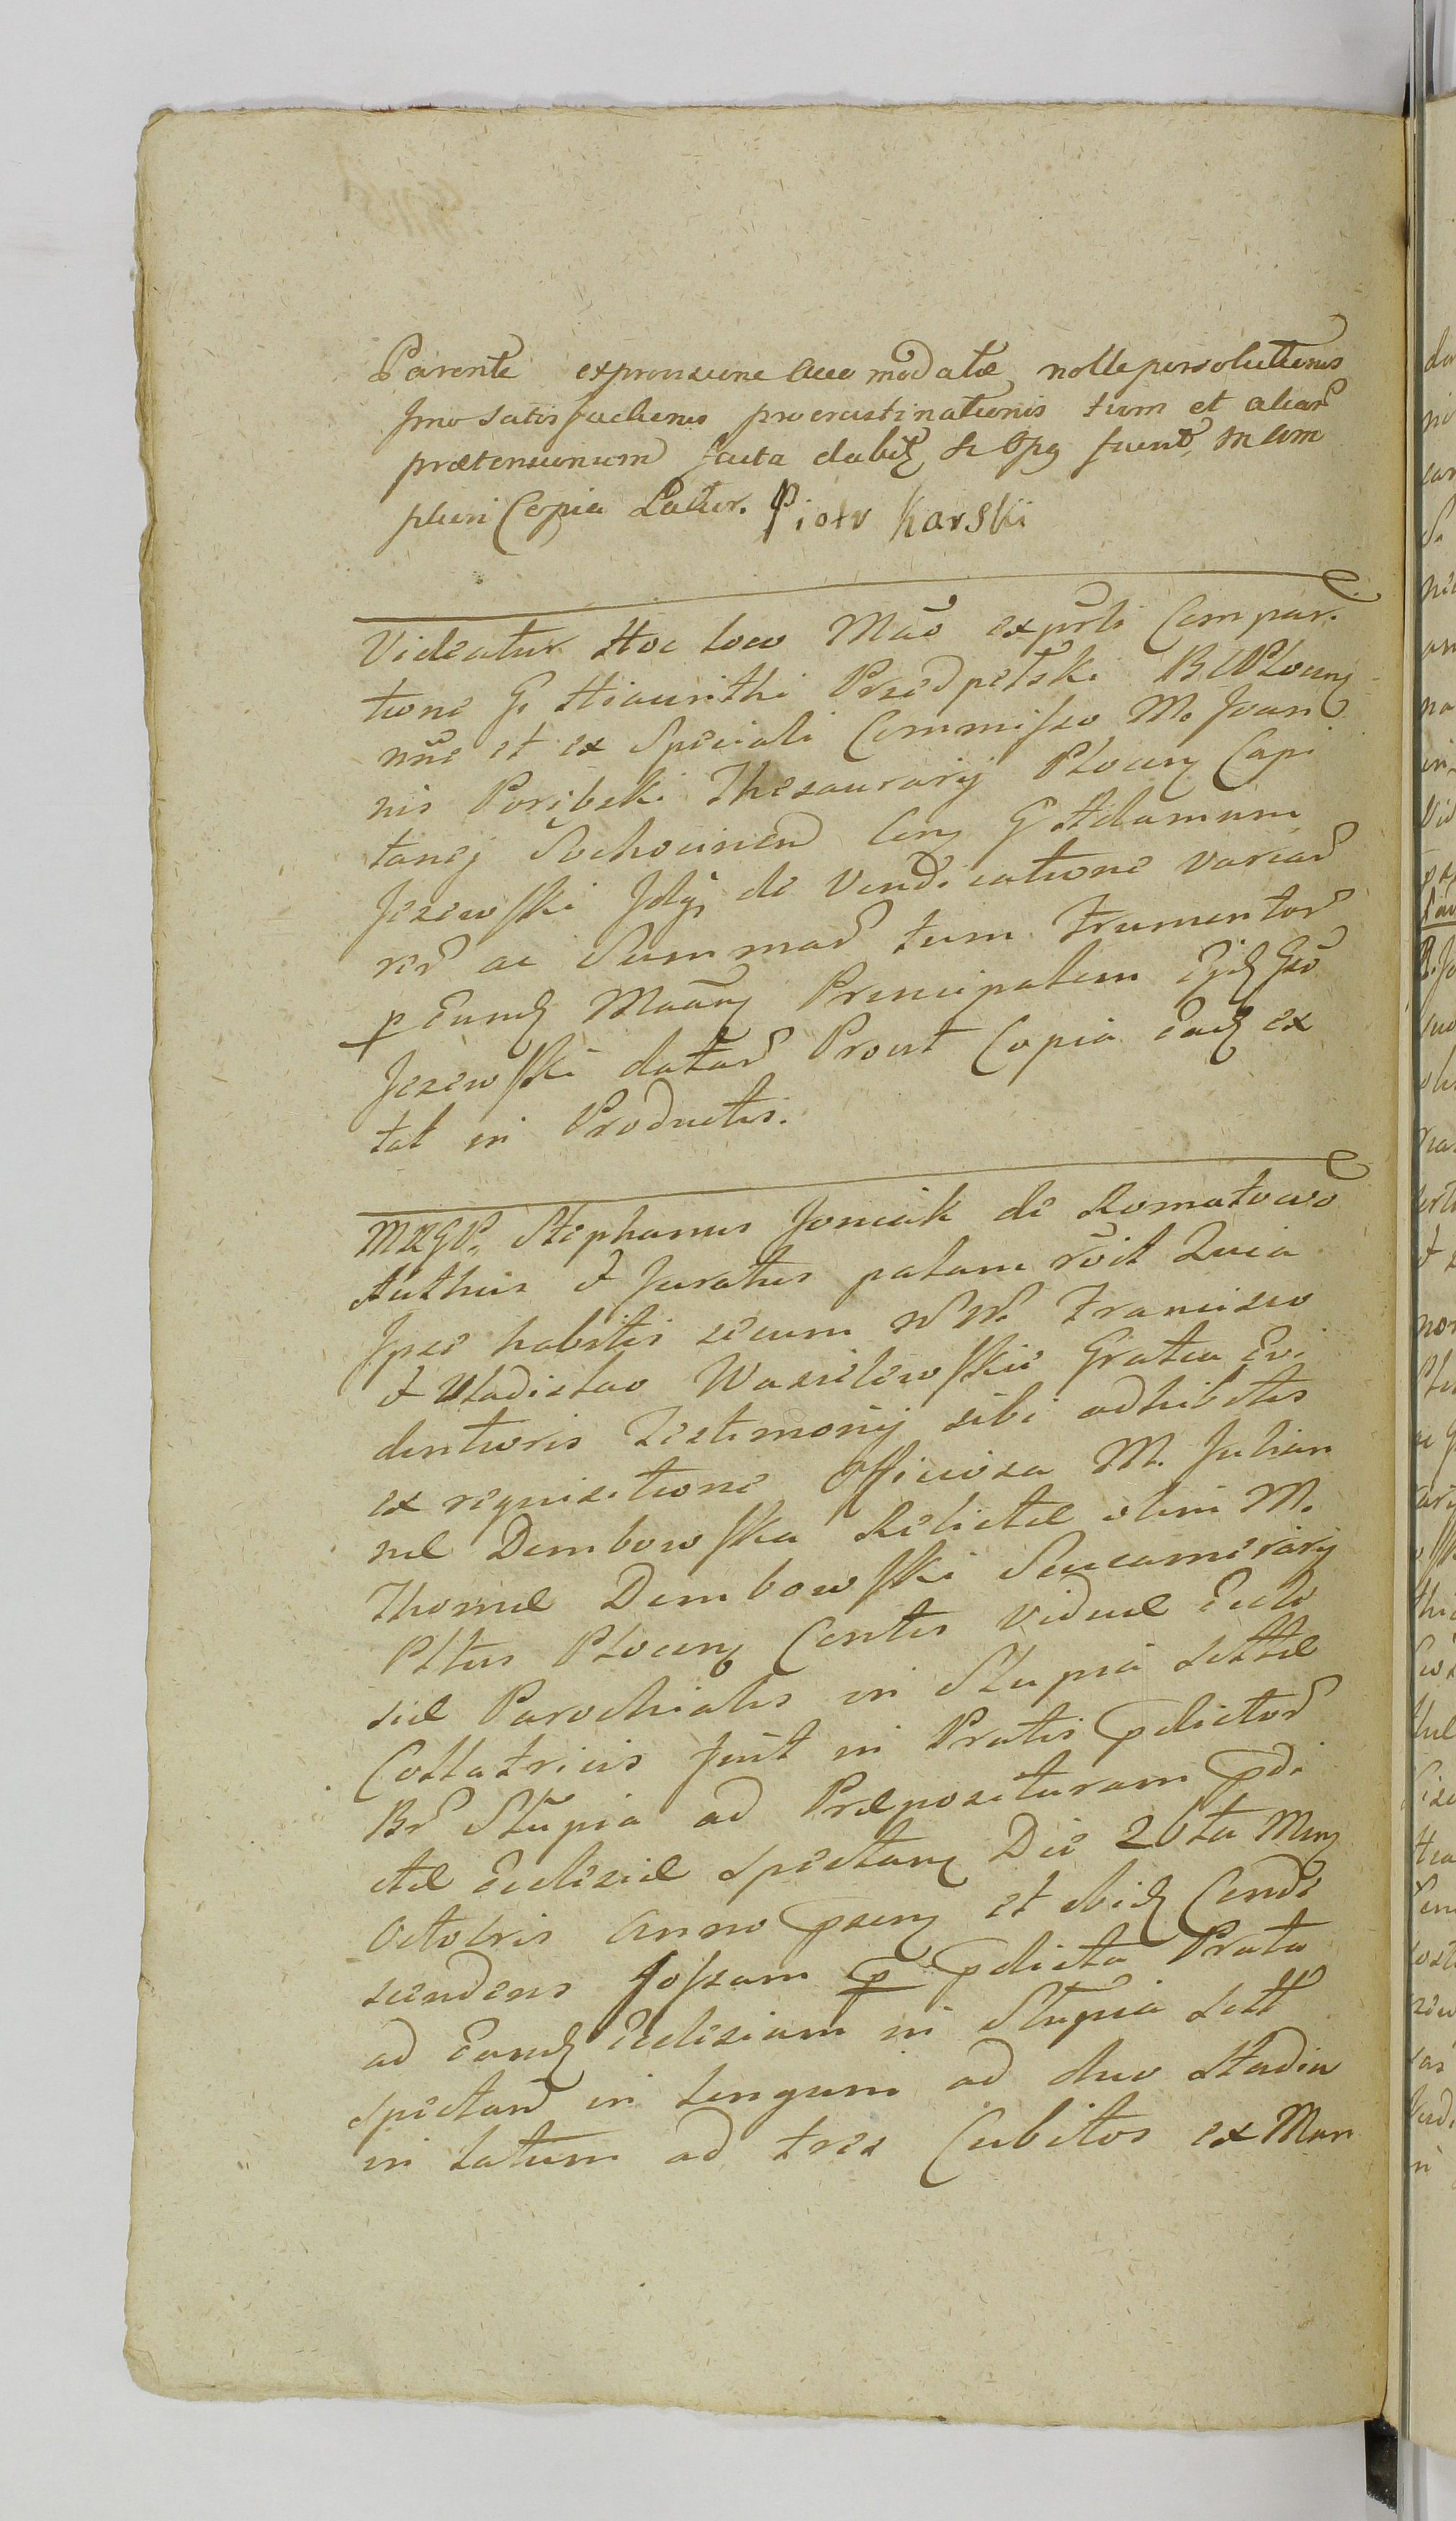 Parente expromissione accomodatæ nolle persolutionis
Imo satisfactionis procrastinationis tum et aliar
prætensionum facta dabit si opg fuerit in am
pliori Copia Latur. Piotr Karski
Videatur Hoc loco Mão ex Compar.
tione G. Hiacinthi Przedpełski Płocen
nne et ex Speciali Commisso M. Joan
nis Poribski Thesaurarij Płocen Capi
tanej Sochocinen Con G Adamum
Jezewski de Vendicatione variar
rer ac Summar tum Frumentor
p Eund Principalem Gso
Jezewski datar Prout Copia Ead ex
tat in Productis.
MRGP. Stephanus Joniak de Romatowo
Authus et Juratus palam rôit Quia
Ipse habitis secum NN. Francisco
et Vladislao Wasilewskie Gratia Evi
dentioris Testimonij sibi adhibitis
ex requisitione Officiosa M. Julian
næ Dembowska Relictæ olim M.
Thomæ Dembowski Succamerarij
Pltus Płocen Contis viduæ Eccle
siæ Parochialis in Słupia sittæ
Collatricis fuit in Pratis pdictor
Br Słupia ad Præposituram pdi
ctæ Ecclesiæ spectan Die 26ta Men
Octobris Anno psen et ibid Conde
scendens Fossam p pdicta Prata
ad Eand Ecclesiam in Słupia sitt
spectan in longum ad duo stadia
in latum ad tres Cubitos ex Man